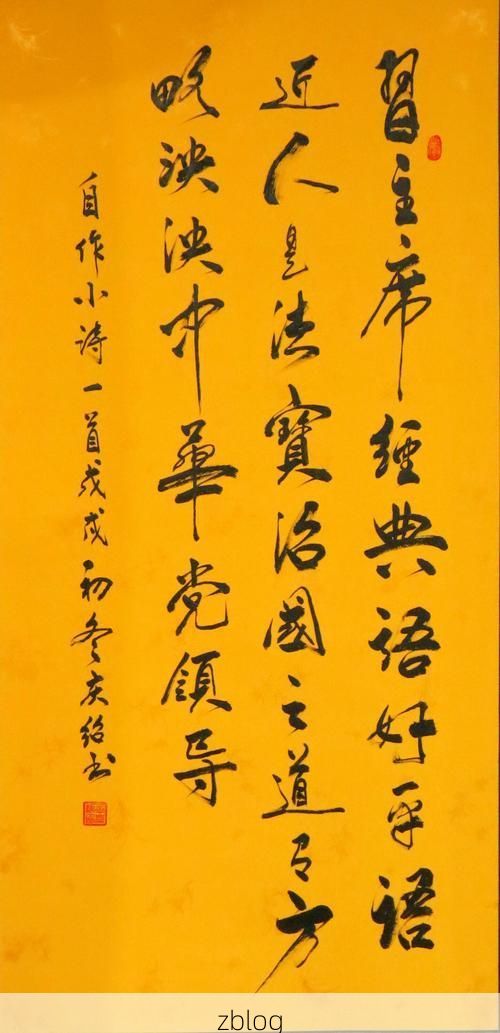 習主席經典語好平語
近人是法寶治國之道有方
略泱泱中華党領导
自作小诗一首戊戌初冬庆绍书
zblog